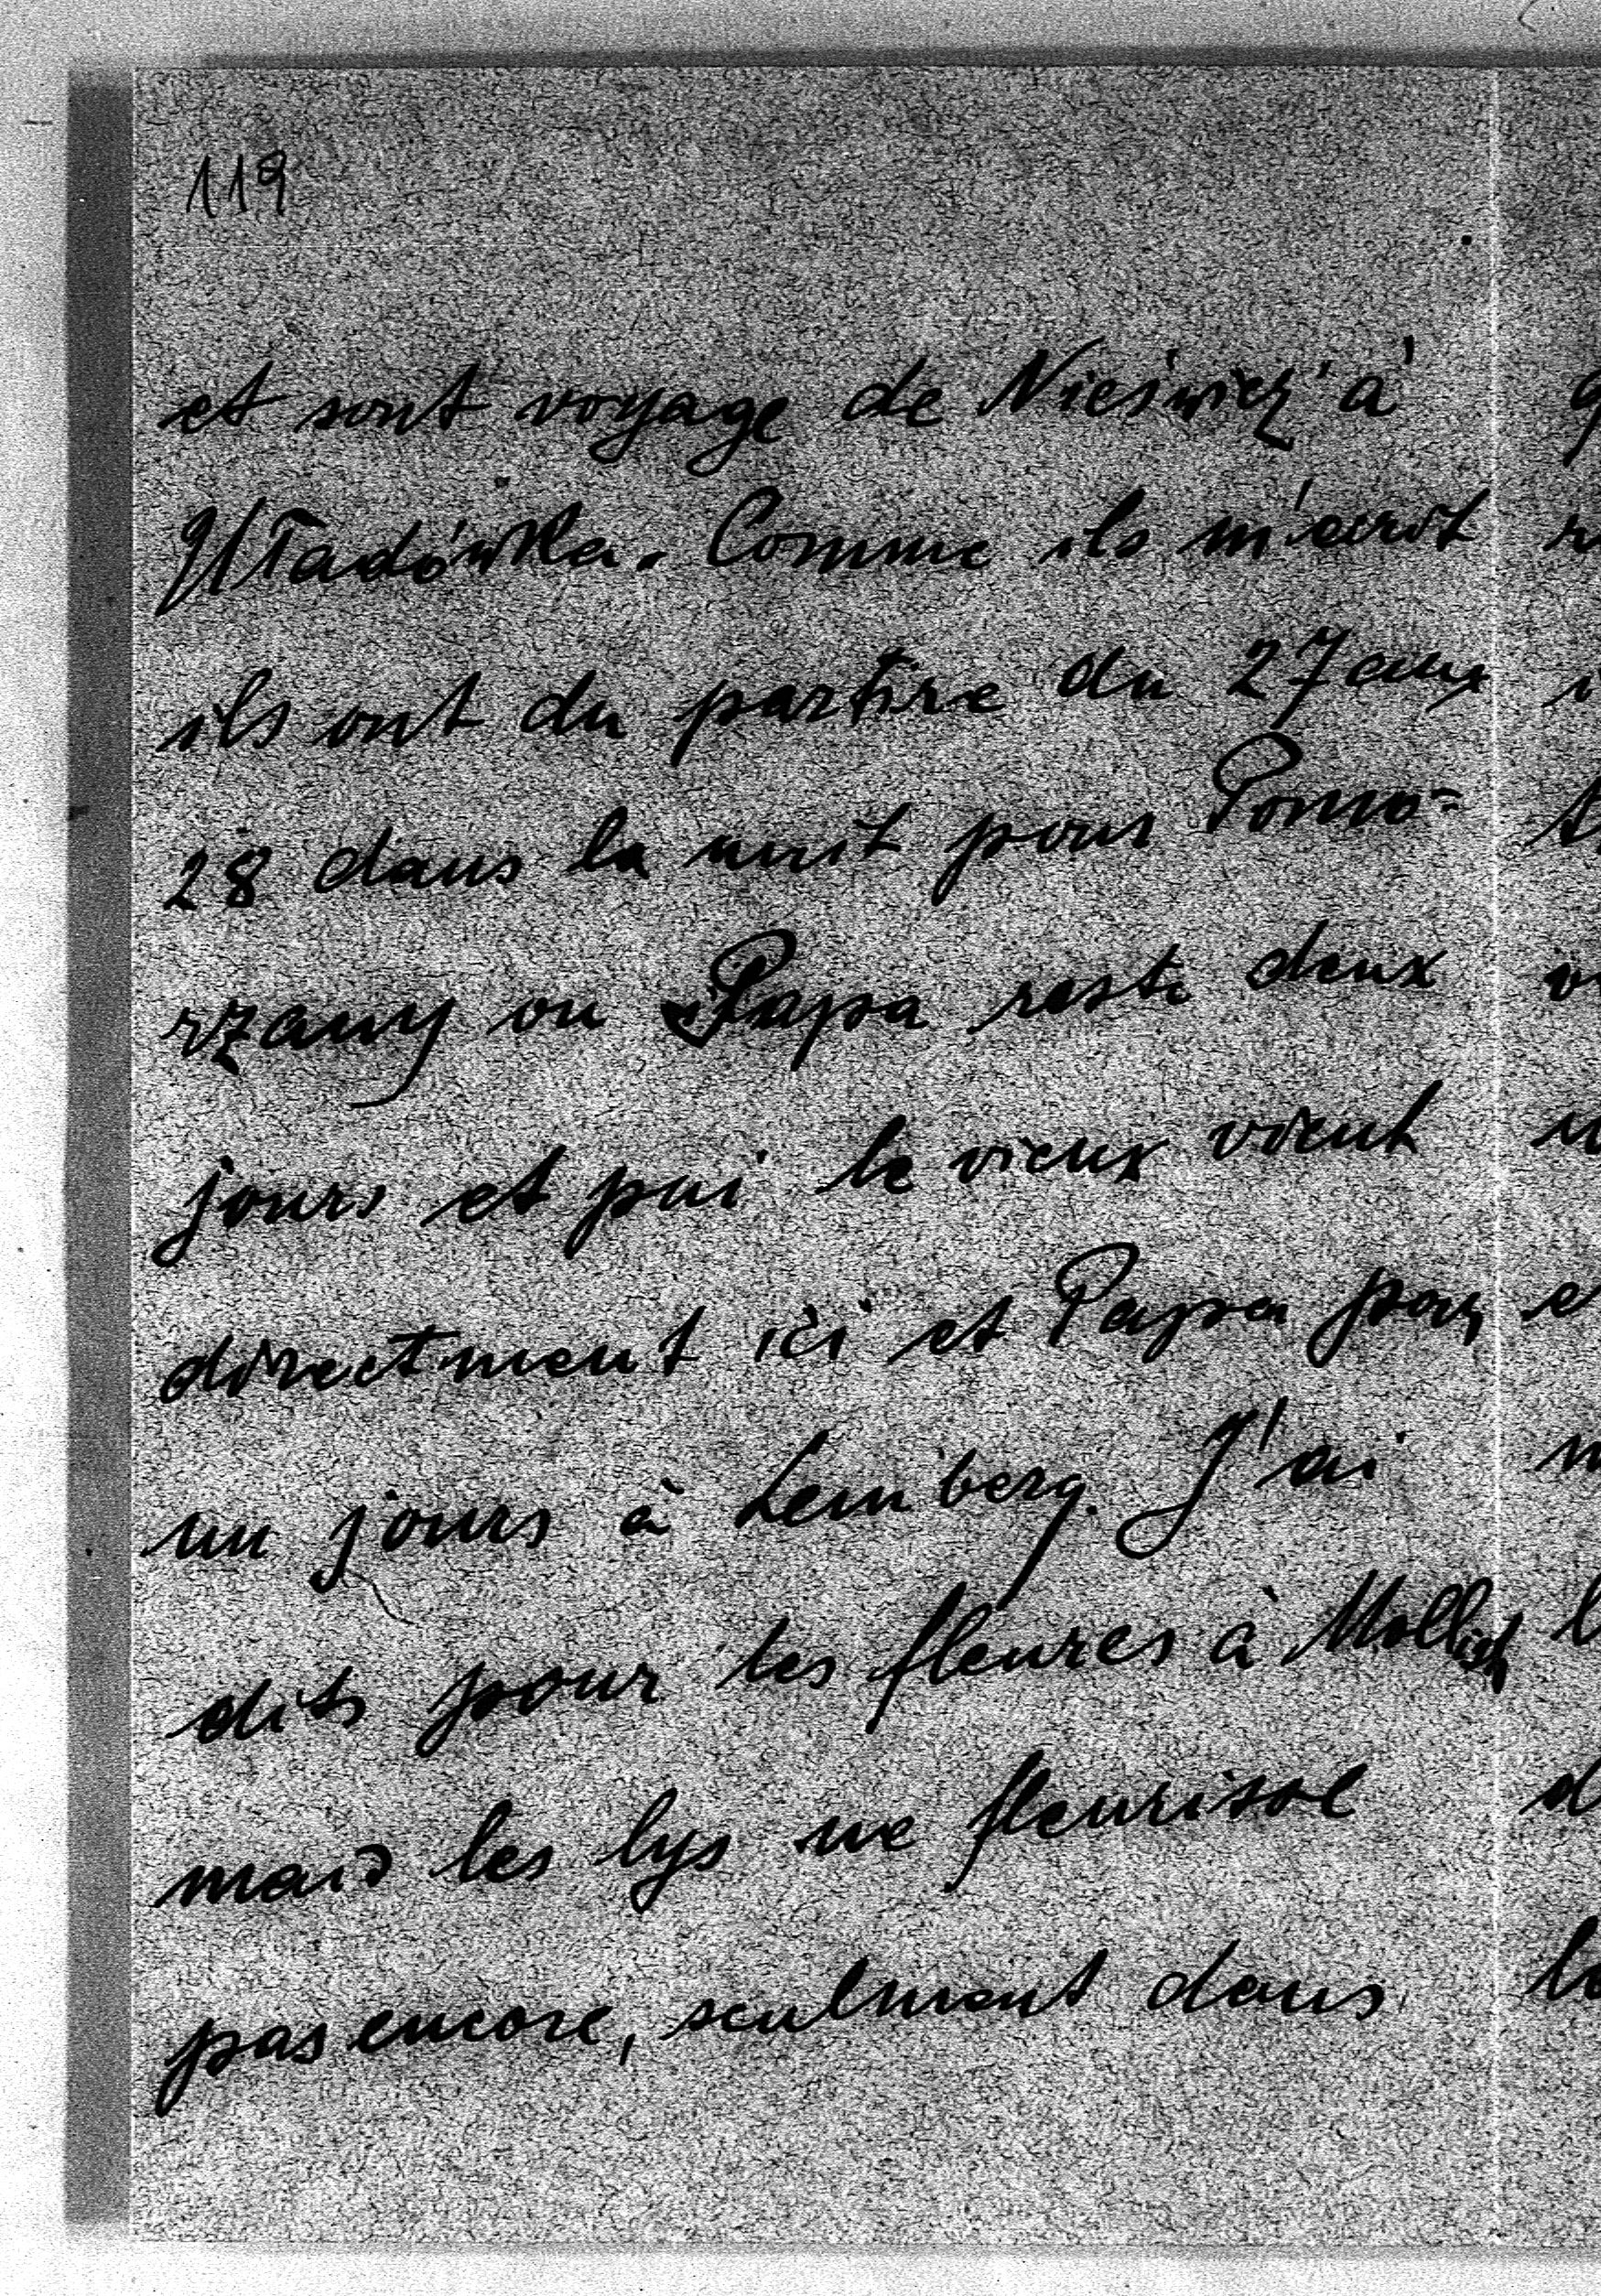 119
et sont voyage de Nieświcz à
Władówka. Comme ils m'ecrit
ils ont du partire du 27 aux
28 dans la nuit pour Pomo-
rzany ou Papa reste deux
jours et pui le vieux vient
directment ici et Papa pour
un jours à Lemberg. J'ai
dits pour les fleures à Mollish
mais les lys ne fleurisse
pas encore, seulment dans